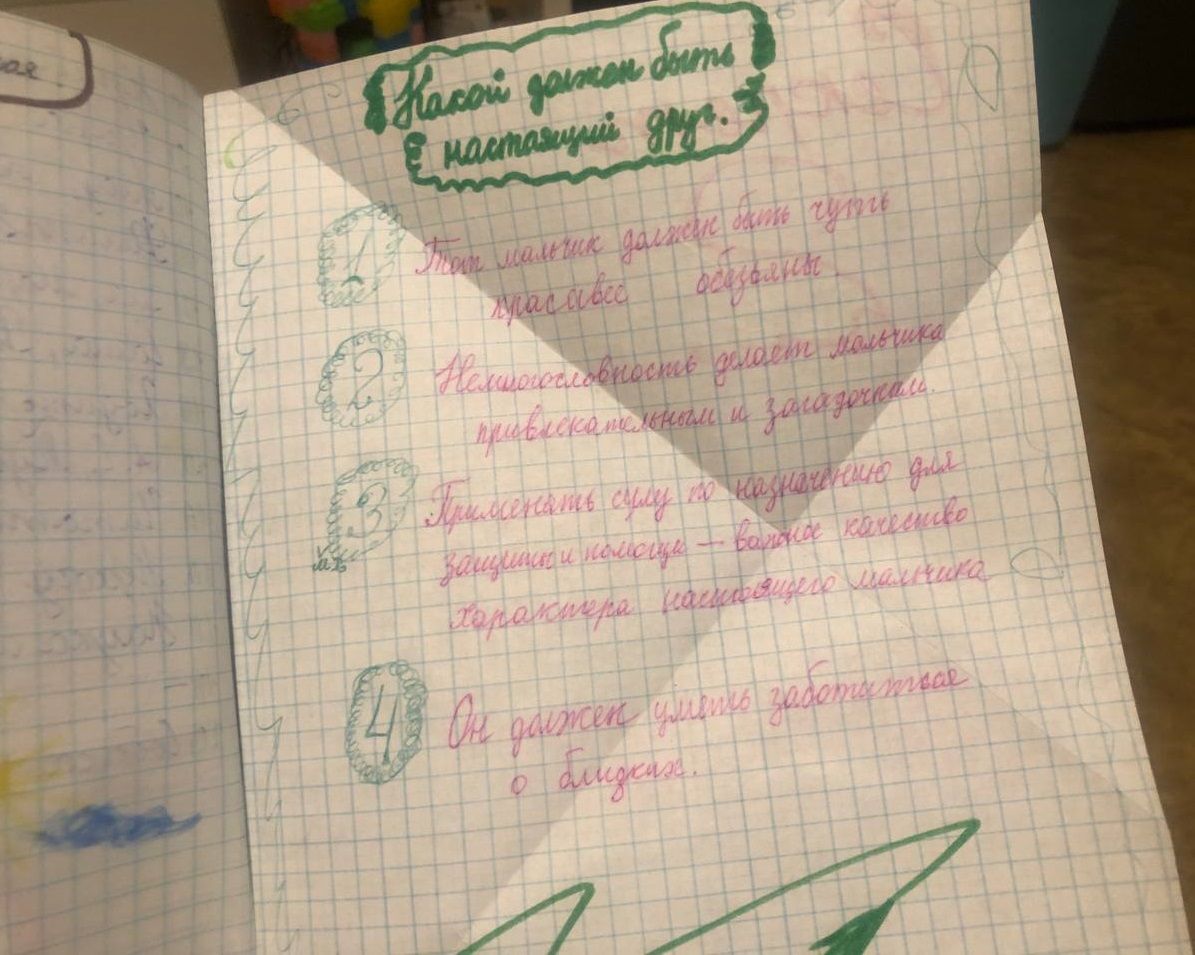 Какой должен быть
настоящий друг.
1
Тот мальчик должен быть чуть
красивее обезьяны.
2
Немногословность делает мальчика
привлекательным и загадочным.
3
Применять силу по назначению для
защиты и помощи — важное качество
характера настоящего мальчика
4
Он должен уметь заботиться
о близких.